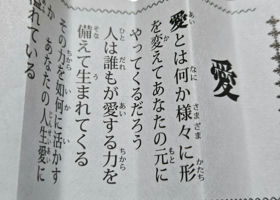 愛
愛とは何か様々に形
を変えてあなたの元に
やってくるだろう
人は誰もが愛する力を
備えて生まれてくる
その力を如何に活かす
か あなたの人生愛に
れている